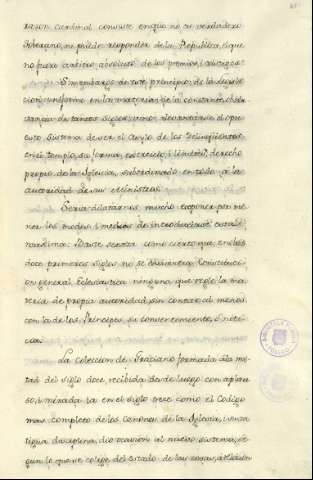 razon Cardinal consiste en que no es verdadero
Soberano, ni puede responder de la Republica, el que
no fuere arbitro absoluto de los premios, i castigos
Sin embargo de este principio, de la legisla
cion uniforme en la materia, i de la constante obser
vancia de tantos siglos, vino a
cuto sistema de ser el Asylo de los delinquentes
en el templo, su forma, exercicio, i limites, derecho
propio de la Iglesia, subordinado en todo a la
autoridad de sus Ministros
Seria dilatarnos mucho exponer por me
nor los modos, i medios de introducirse esta
Baste sentar como cierto que en los
doce primeros siglos no se Constitucion
general Eclesiastica ninguna que regle la ma
teria de propia autoridad, sin contar al menos
con la de los Principes, su consentimiento, o noti
cia.
La coleccion de Graciano formada a la mi
tad del siglo doce, recibida desde luego con aplau
so, i mirada ya en el siglo trece como el Codigo
mas completo de los Canones de la Iglesia, i
tigua disciplina, dio ocasion al nuevo sistema, se
gun lo que se colige del estado de las cosas,